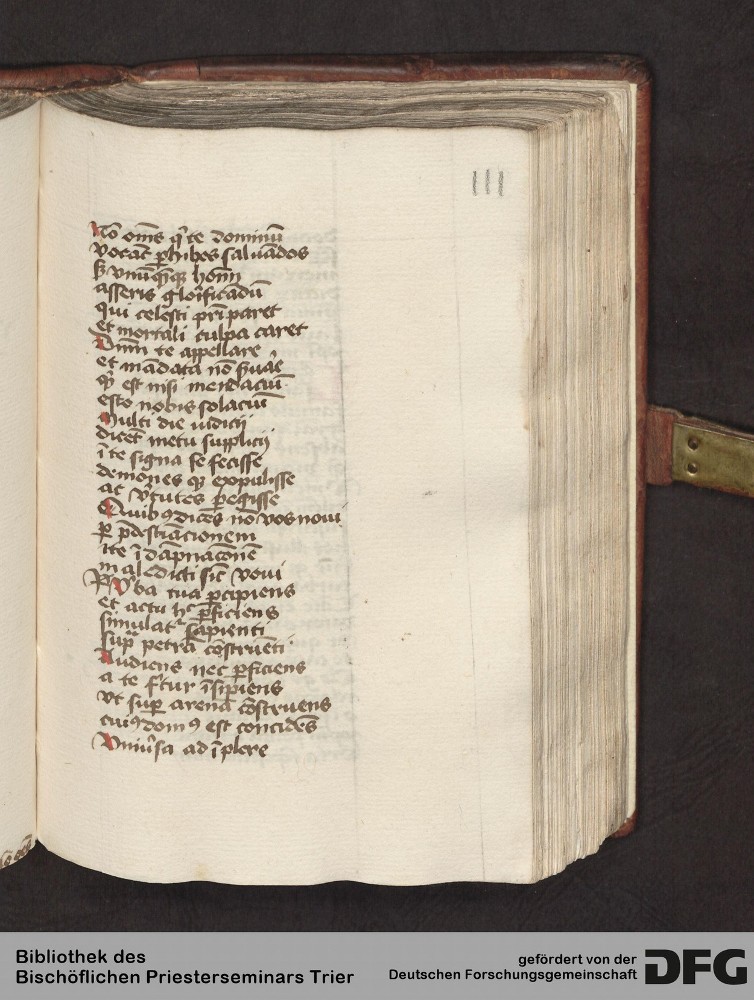 III
No᷑ om̅s q̇ te dominū
vocāt ꝑhibes saluādos
sꝫ vnūq̄mqꝫ hōīm
asseris glo᷑ificādū
qui celesti pr̄i paret
et mortali culpa caret
Dn̄m te appellare
et mādata nō ẜuar̄
qͥd est nisi mendaciū
esto nobis solaciū
Multi die iudicij
dicēt metu supplicij
ī te signa se fecisse
demones qꝫ expulisse
ac v᷑tutes ꝑegisse
Quibꝰ dices nō vos noui
ꝑ p̄destinacionem
ite ī dāpnacōnē
maledicti sic̄ voui
V᷑ba tua ꝑcipiens
et actu hͨ ꝑficiens
simulatᷣ sapienti
supͣ petrā cōstruēti
Audiens nec ꝑficiens
a te f᷑tur īsipiens
vt suꝑ arenā cōstruens
cuiꝰ domꝰ est concidēs
Vniu᷑sa ad īplere
Bibliothek des
Bischöflichen Priesterseminars Trier
gefördert von der
Deutschen Forschungsgemeinschaft
DFG